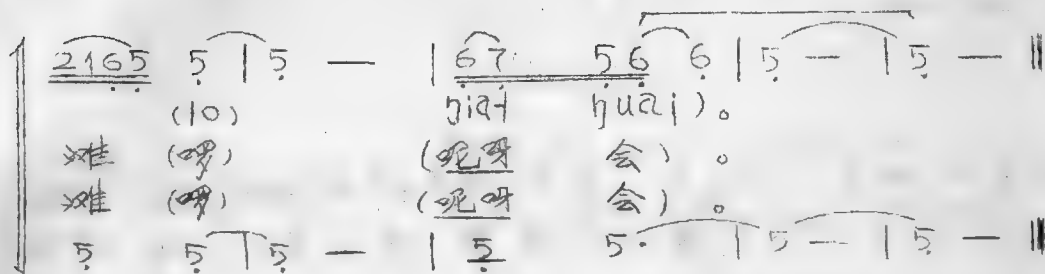 2165 5 | 5 — | 67 56 6 | 5 — | 5 — ‖
(lo) ŋia˧ ŋuai)。
难 (啰) (呢呀 会)。
难 (啰) (呢呀 会)。
5 5 | 5 — | 5 5· | 5 — | 5 — ‖